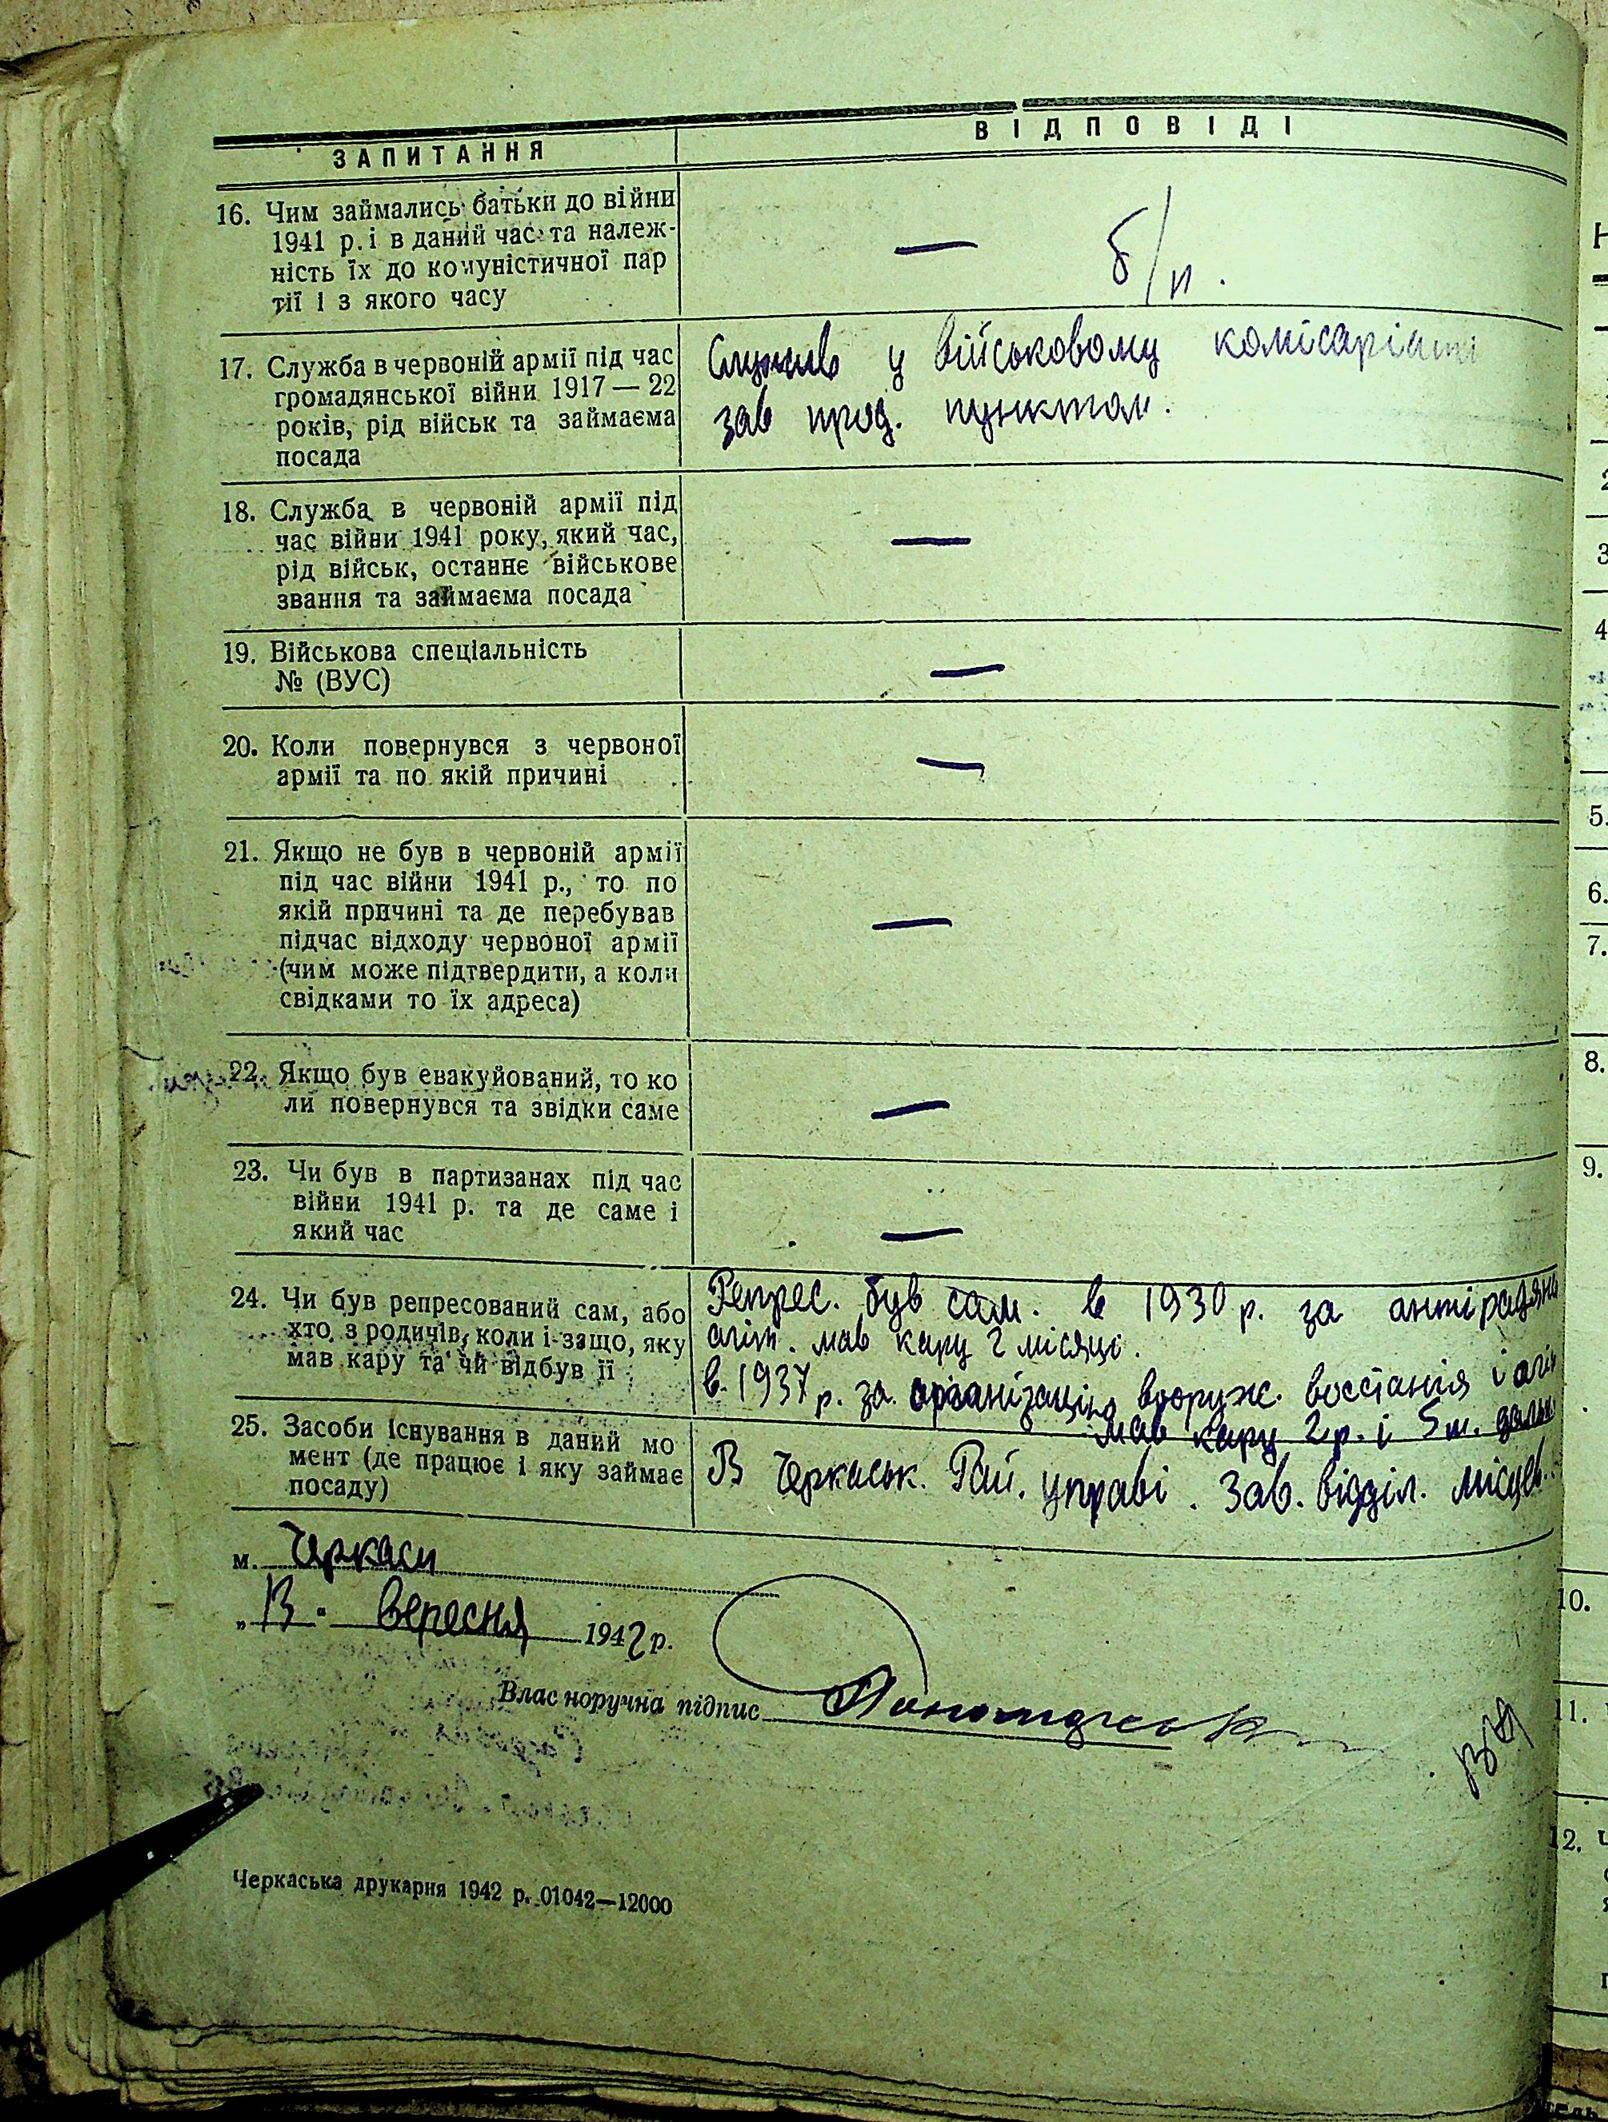 ЗАПИТАННЯ
ВІДПОВІДІ
16. Чим займались батьки до війни
1941 р. і в даний час та належ-
ність їх до комуністичної пар
тії і з якого часу
— б/п.
17. Служба в червоній армії під час
громадянської війни 1917 — 22
років, рід військ та займаєма
посада
Служив у військовому комісаріаті
зав прод. пунктом.
18. Служба в червоній армії під
час війни 1941 року, який час,
рід військ, останнє військове
звання та займаєма посада
—
19. Військова спеціальність
№ (ВУС)
—
20. Коли повернувся з червоної
армії та по якій причині
—
21. Якщо не був в червоній армії
під час війни 1941 р., то по
якій причині та де перебував
підчас відходу червоної армії
(чим може підтвердити, а коли
свідками то їх адреса)
—
22. Якщо був евакуйований, то ко
ли повернувся та звідки саме
—
23. Чи був в партизанах під час
війни 1941 р. та де саме і
який час
—
24. Чи був репресований сам, або
хто з родичів, коли і защо, яку
мав кару та чи відбув її
Репрес. був сам. в 1930 р. за антірадянс
агіт. мав кару 2 місяці.
в 1937 р. за організацію вооруж. восстанія і агіт
мав кару 2 р. і 5 м. дальн
25. Засоби існування в даний мо
мент (де працює і яку займає
посаду)
В Черкаськ. Рай. управі. Зав. відділ. місцев.
м. Черкаси
„13" вересня 1942 р.
Власноручна підпис
Черкаська друкарня 1942 р. 01042—12000
3
4
5.
6.
7.
8.
9.
10.
11.
12.